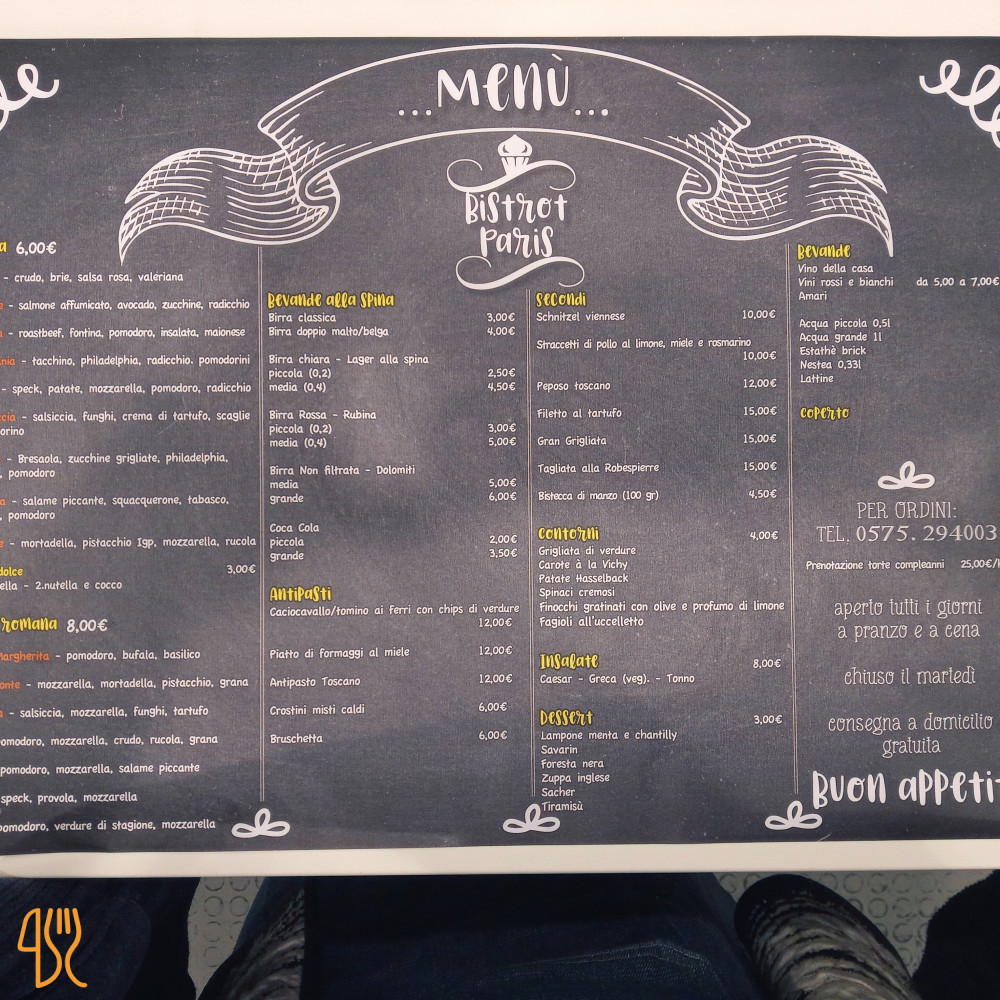 ...Menù...
Bistrot
Paris
6,00€
- crudo, brie, salsa rosa, valeriana
- salmone affumicato, avocado, zucchine, radicchio
- roastbeef, fontina, pomodoro, insalata, maionese
- tacchino, philadelphia, radicchio. pomodorini
- speck, patate, mozzarella, pomodoro, radicchio
- salsiccia, funghi, crema di tartufo, scaglie
- Bresaola, zucchine grigliate, philadelphia,
, pomodoro
- salame piccante, squacquerone, tabasco,
, pomodoro
- mortadella, pistacchio Igp, mozzarella, rucola
dolce 3,00€
- 2.nutella e cocco
romana 8,00€
Margherita - pomodoro, bufala, basilico
- mozzarella, mortadella, pistacchio, grana
- salsiccia, mozzarella, funghi, tartufo
pomodoro, mozzarella, crudo, rucola, grana
pomodoro, mozzarella, salame piccante
speck, provola, mozzarella
pomodoro, verdure di stagione, mozzarella
Bevande alla Spina
Birra classica 3,00€
Birra doppio malto/belga 4,00€
Birra chiara - Lager alla spina
piccola (0,2) 2,50€
media (0,4) 4,50€
Birra Rossa - Rubina
piccola (0,2) 3,00€
media (0,4) 5,00€
Birra Non filtrata - Dolomiti
media 5,00€
grande 6,00€
Coca Cola
piccola 2,00€
grande 3,50€
Antipasti
Caciocavallo/tomino ai ferri con chips di verdure
12,00€
Piatto di formaggi al miele 12,00€
Antipasto Toscano 12,00€
Crostini misti caldi 6,00€
Bruschetta 6,00€
Secondi
Schnitzel viennese 10,00€
Straccetti di pollo al limone, miele e rosmarino
10,00€
Peposo toscano 12,00€
Filetto al tartufo 15,00€
Gran Grigliata 15,00€
Tagliata alla Robespierre 15,00€
Bistecca di manzo (100 gr) 4,50€
Contorni 4,00€
Grigliata di verdure
Carote à la Vichy
Patate Hasselback
Spinaci cremosi
Finocchi gratinati con olive e profumo di limone
Fagioli all'uccelletto
Insalate 8,00€
Caesar - Greca (veg). - Tonno
Dessert 3,00€
Lampone menta e chantilly
Savarin
Foresta nera
Zuppa inglese
Sacher
Tiramisù
Bevande
Vino della casa
Vini rossi e bianchi da 5,00 a 7,00€
Amari
Acqua piccola 0,5l
Acqua grande 1l
Estathè brick
Nestea 0,33l
Lattine
Coperto
PER ORDINI:
TEL. 0575. 294003
Prenotazione torte compleanni 25,00€/
aperto tutti i giorni
a pranzo e a cena
chiuso il martedì
consegna a domicilio
gratuita
Buon appetit